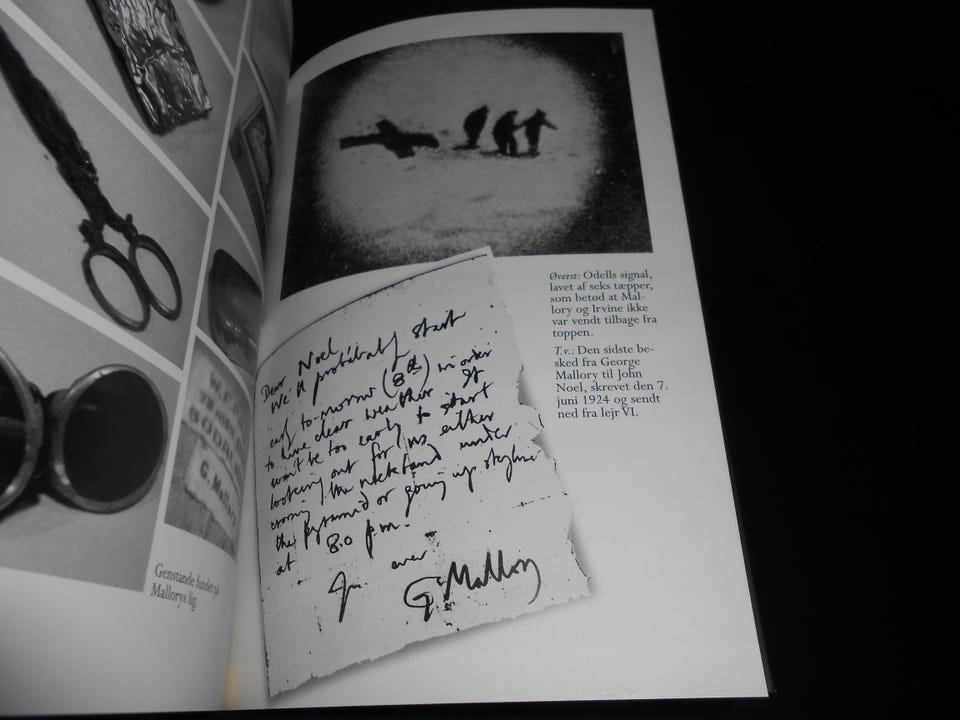 G. Mallory
Genstande fundet på
Mallorys lig.
Øverst: Odells signal,
lavet af seks tæpper,
som betød at Mal-
lory og Irvine ikke
var vendt tilbage fra
toppen.
T.v.: Den sidste be-
sked fra George
Mallory til John
Noel, skrevet den 7.
juni 1924 og sendt
ned fra lejr VI.
Dear Noel,
We'll probably start
early to-morrow (8th) in order
to have clear weather. It
won't be too early to start
looking out for us either
crossing the rockband under
the pyramid or going up skyline
at 8.0 p.m.
ever
G Mallory